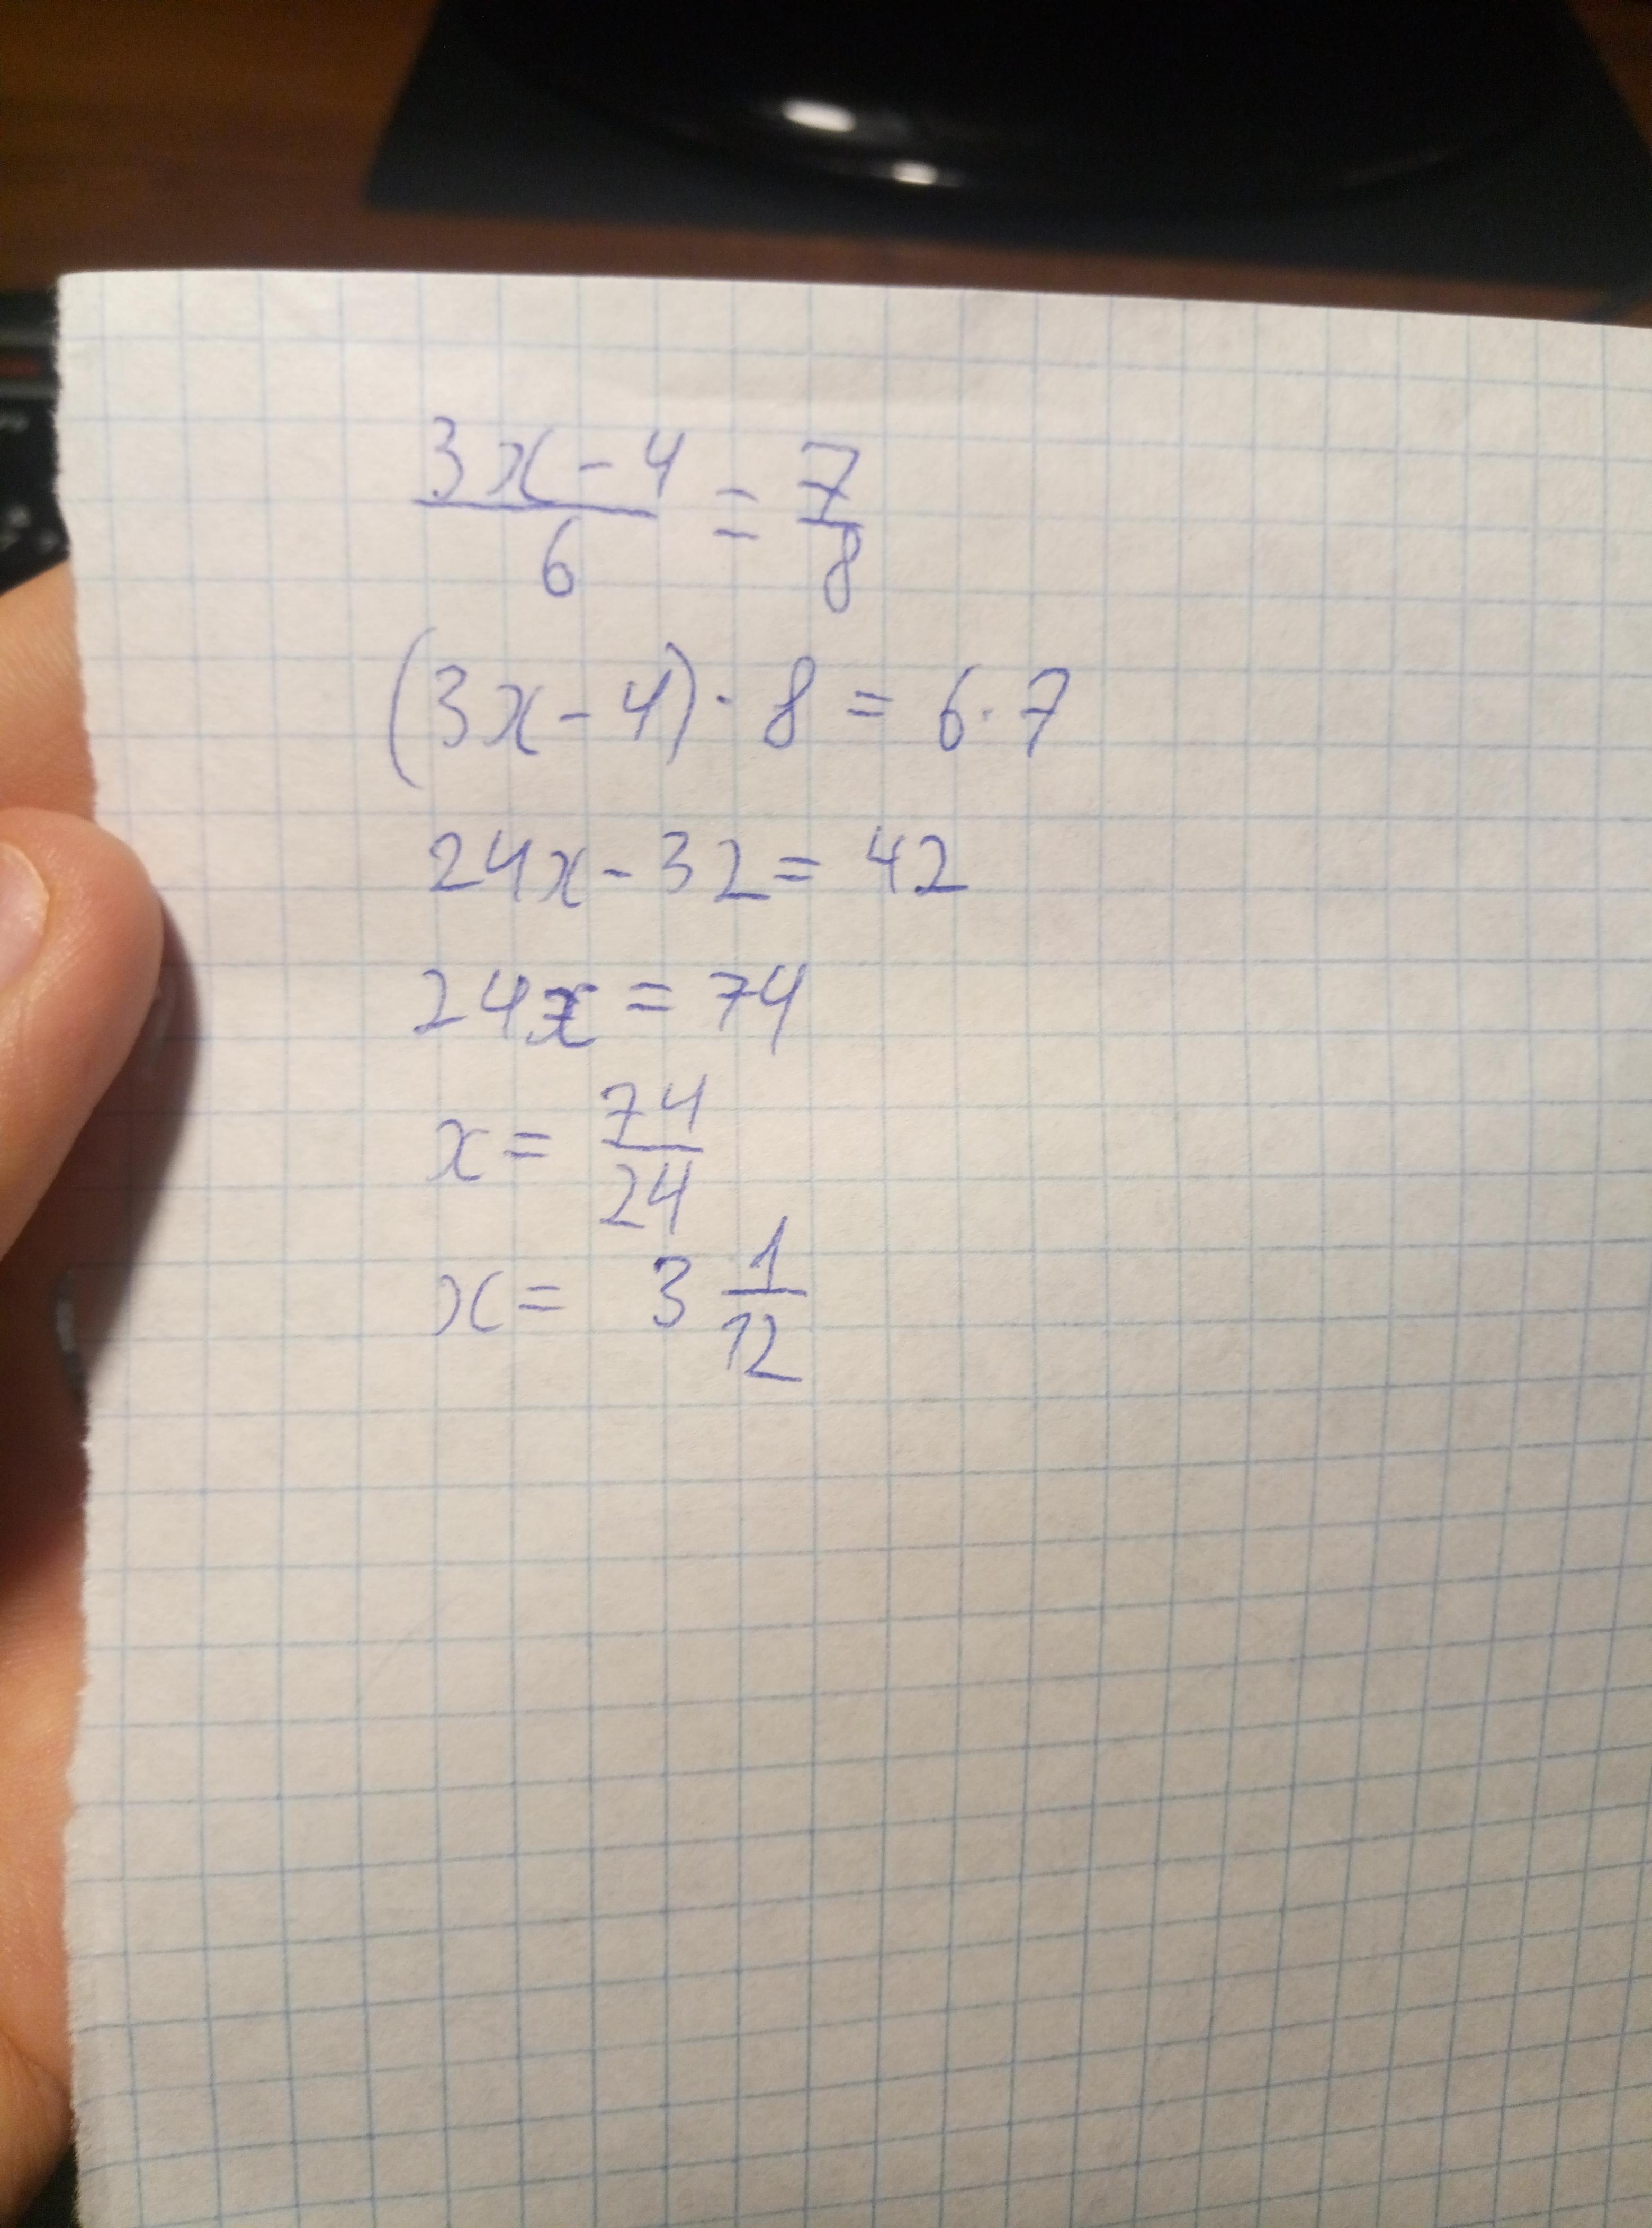 (3x-4)/6 = 7/8
(3x-4)·8 = 6·7
24x-32 = 42
24x = 74
x = 74/24
x = 3 1/12